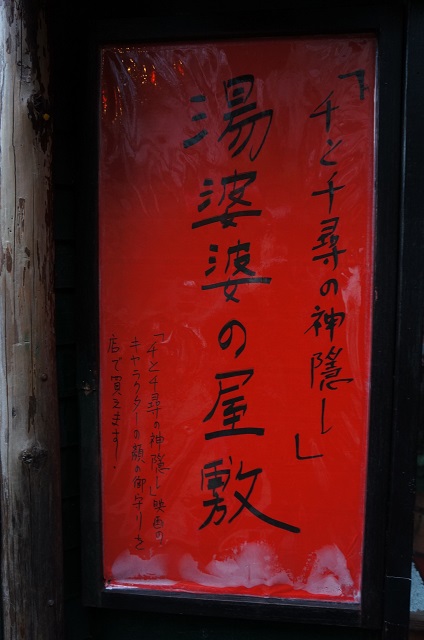 「千と千尋の神隠し」
湯婆婆の屋敷
「千と千尋の神隠し」映画の、
キャラクターの顔の御守りを
店で買えます.